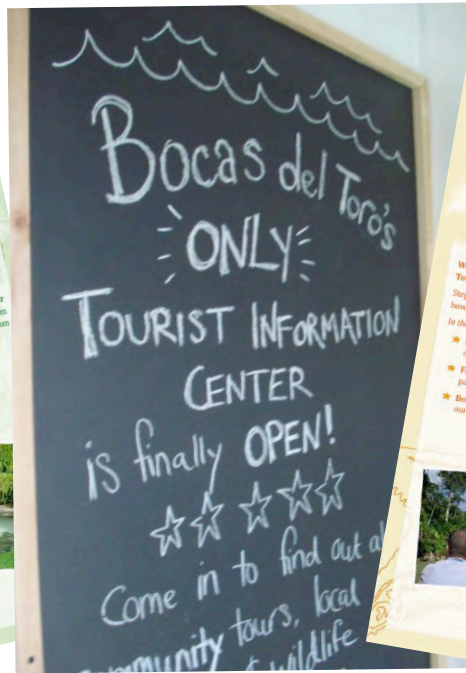 Bocas del Toro's
ONLY
TOURIST INFORMATION
CENTER
is finally OPEN!
Come in to find out
tours, local
wildlife